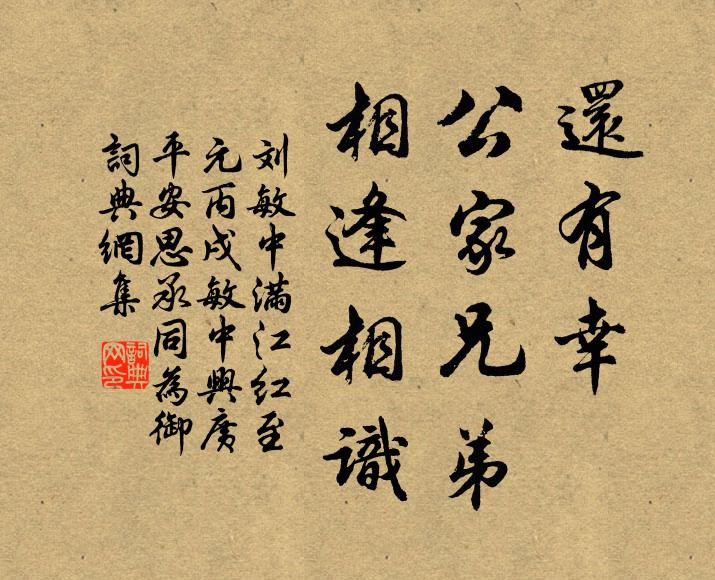 還有幸
公家兄弟
相逢相識
刘敏中满江红至
元丙戌敏中與廣
平安思承同為御
詞典網集
詞典網印